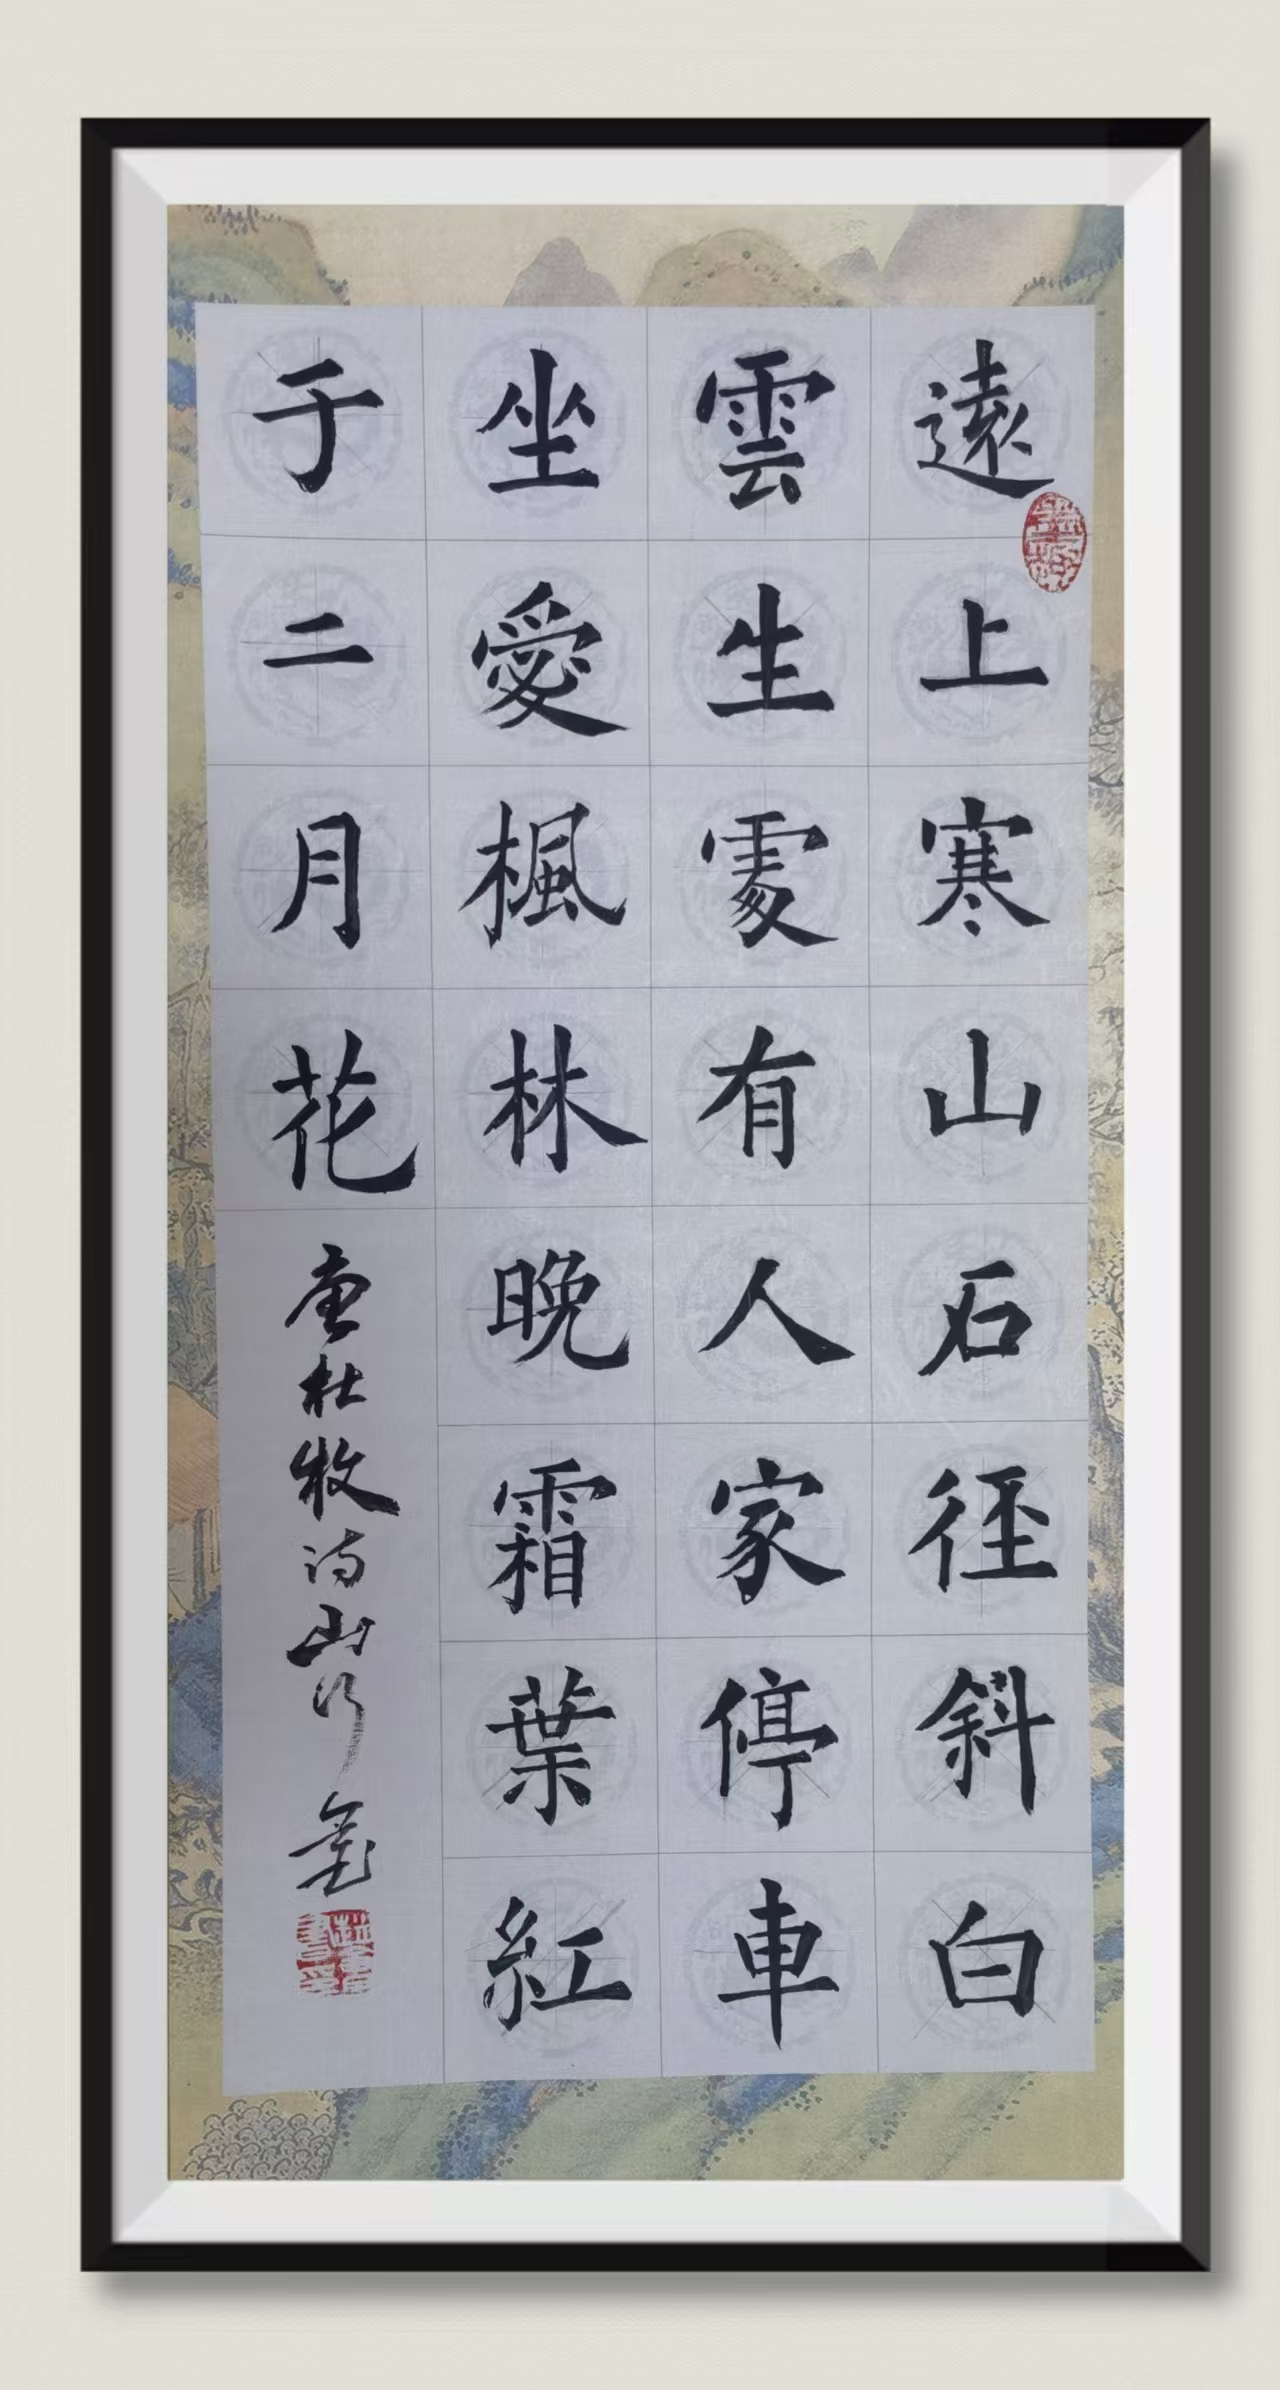 遠上寒山石徑斜白
雲生處有人家停車
坐愛楓林晚霜葉紅
于二月花
唐杜牧詩山行